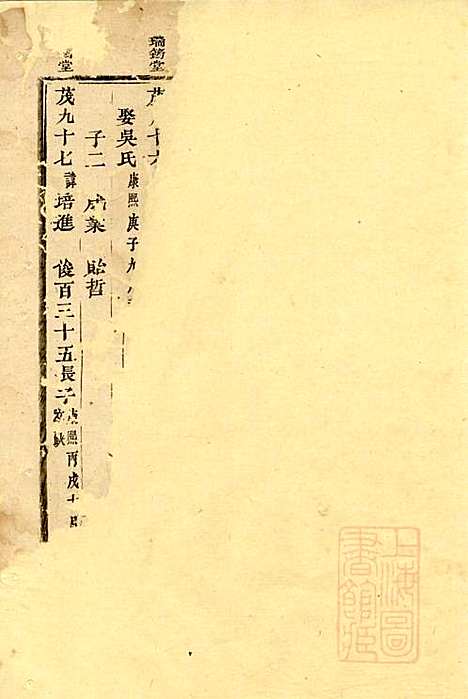 瑞錫堂
堂
茂 十六
娶吳氏 康熙庚子九
子二 成業 貽哲
茂九十七 諱培進 俊百三十五長子 康熙丙戌十
缺
上海圖書館藏